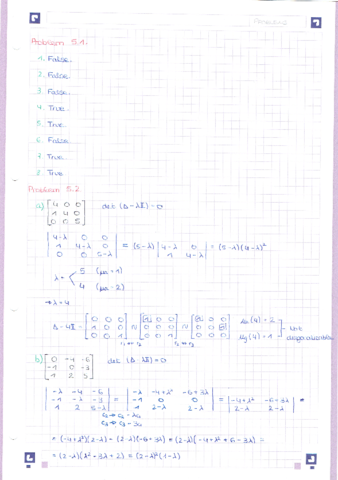 Problem 5.1.
1. False.
2. False.
3. False.
4. True.
5. True.
6. False
7. True
8. True
Problem 5.2
a) [4 0 0; 1 4 0; 0 0 5] det (A - λI) = 0
|4-λ 0 0; 1 4-λ 0; 0 0 5-λ| = (5-λ) |4-λ 0; 1 4-λ| = (5-λ)(4-λ)²
λ = 5 (μa = 1)
4 (μa = 2)
→ λ = 4
A - 4I = [0 0 0; 1 0 0; 0 0 1] μa(4) = 2
μg(4) = 1 Not diagonalizable
b) [0 -4 -6; -1 0 -3; 1 2 5] det (A - λI) = 0
|-λ -4 -6; -1 -λ -3; 1 2 5-λ| = |-λ -4+λ² -6+3λ; -1 0 0; 1 2-λ 2-λ| = |-4+λ² -6+3λ; 2-λ 2-λ| =
= (-4+λ²)(2-λ) - (2-λ)(-6+3λ) = (2-λ)(-4+λ²+6-3λ) =
= (2-λ)(λ²-3λ+2) = (2-λ)²(1-λ)